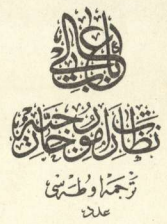 باب عالی
نظارت امور خارجیه
ترجمه اوطه سی
عدد